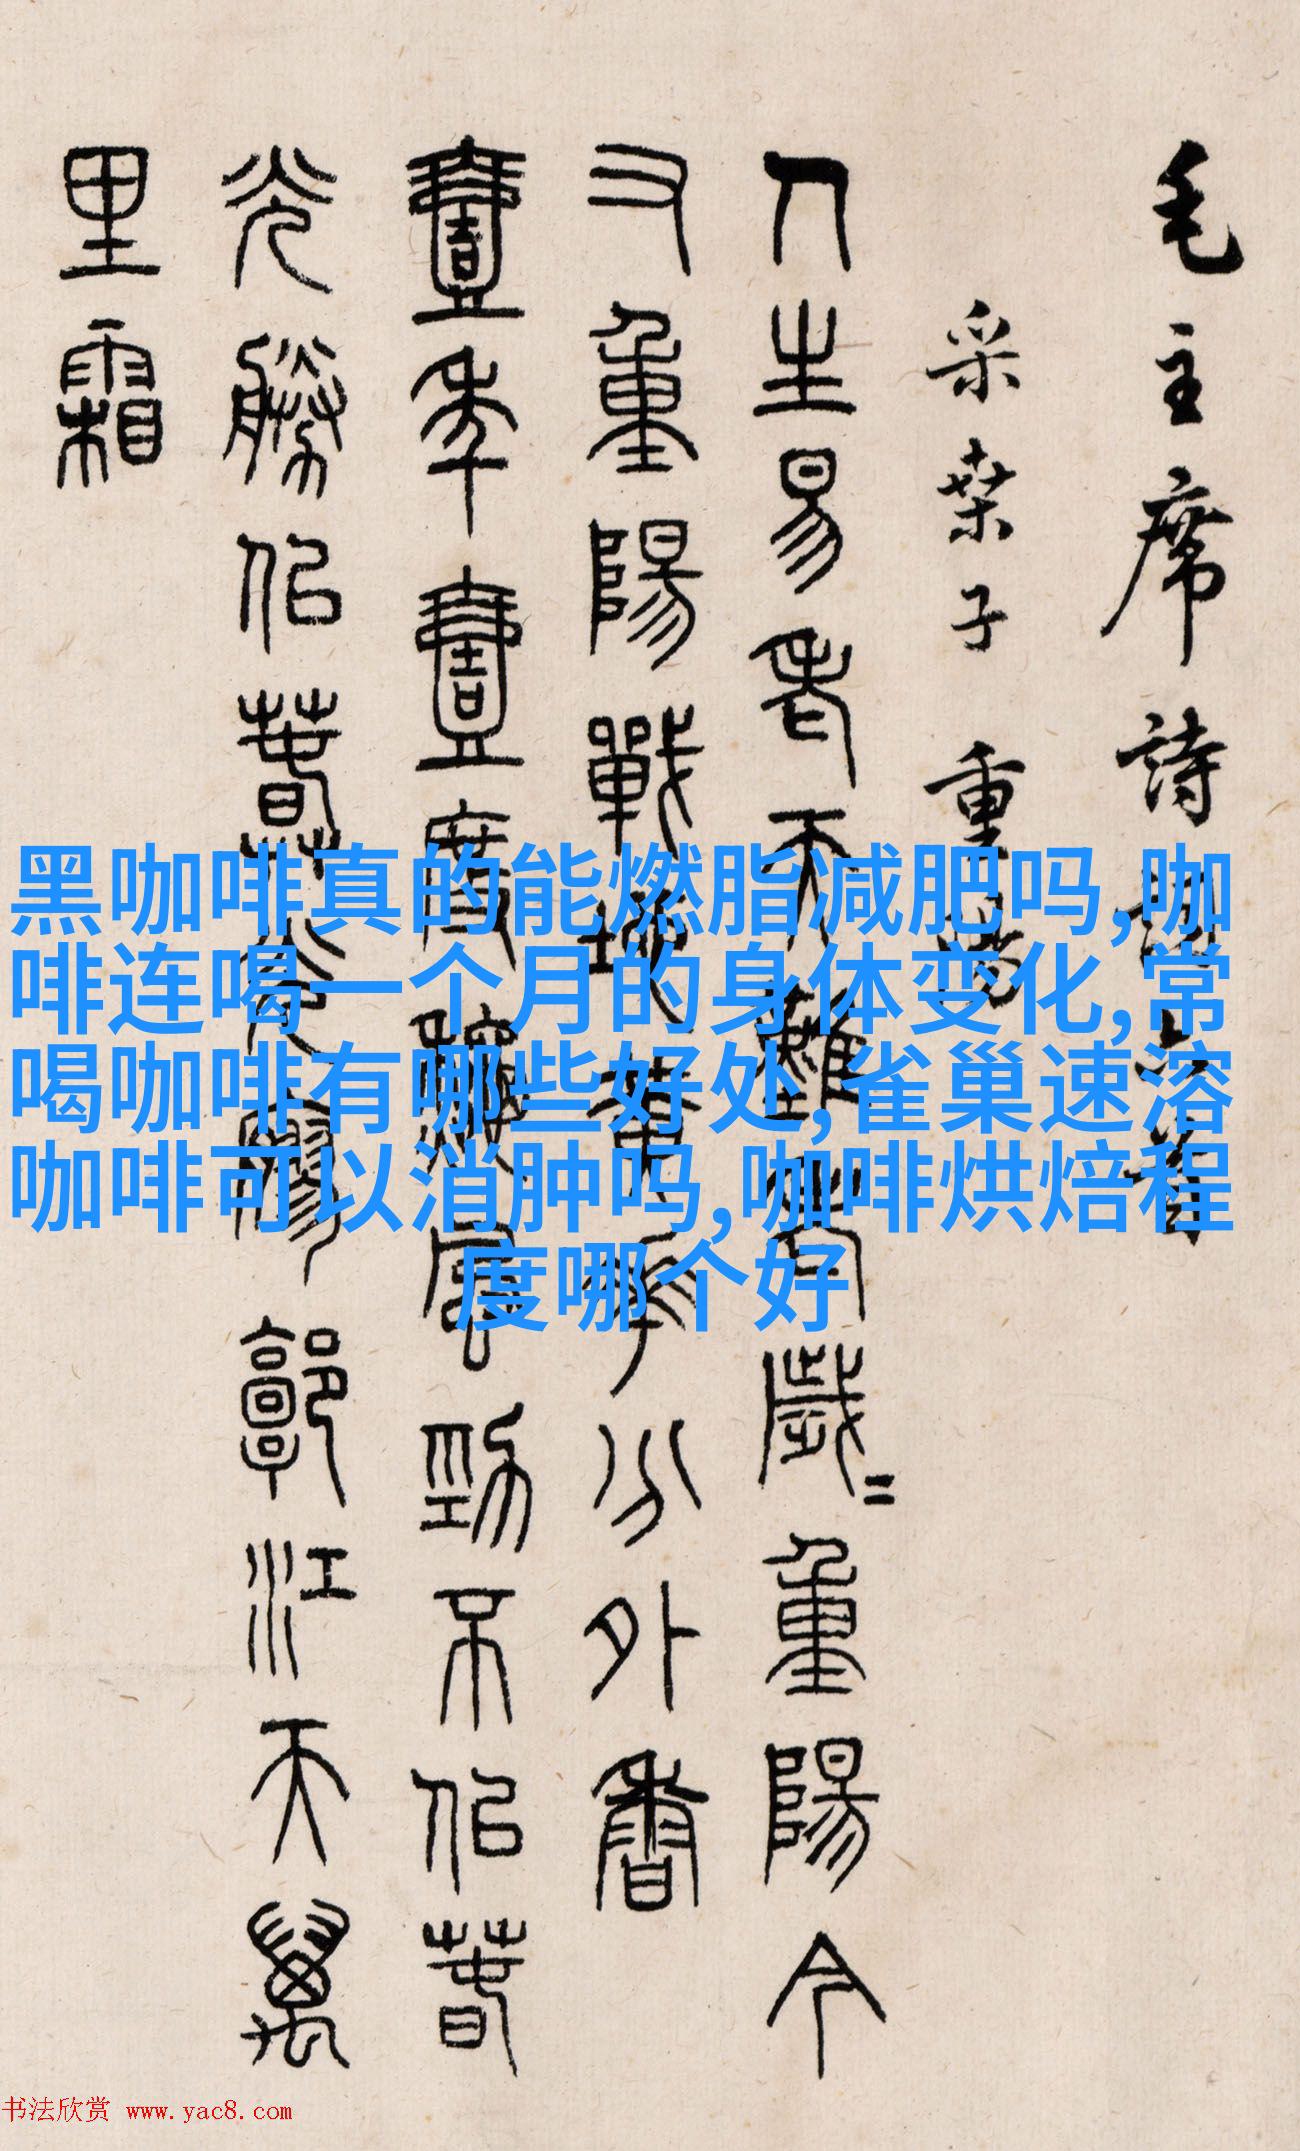 毛主席詩詞六首
采桒子 重陽
人生易老天難老歲〻重陽今
又重陽戰地黃花分外香
壹年壹度穐風勁不似春
光勝似春光寥郭江天萬
里霜
黑咖啡真的能燃脂减肥吗,咖
啡连喝一个月的身体变化,常
喝咖啡有哪些好处,雀巢速溶
咖啡可以消肿吗,咖啡烘焙程
度哪个好
书法欣赏 www.yac8.com